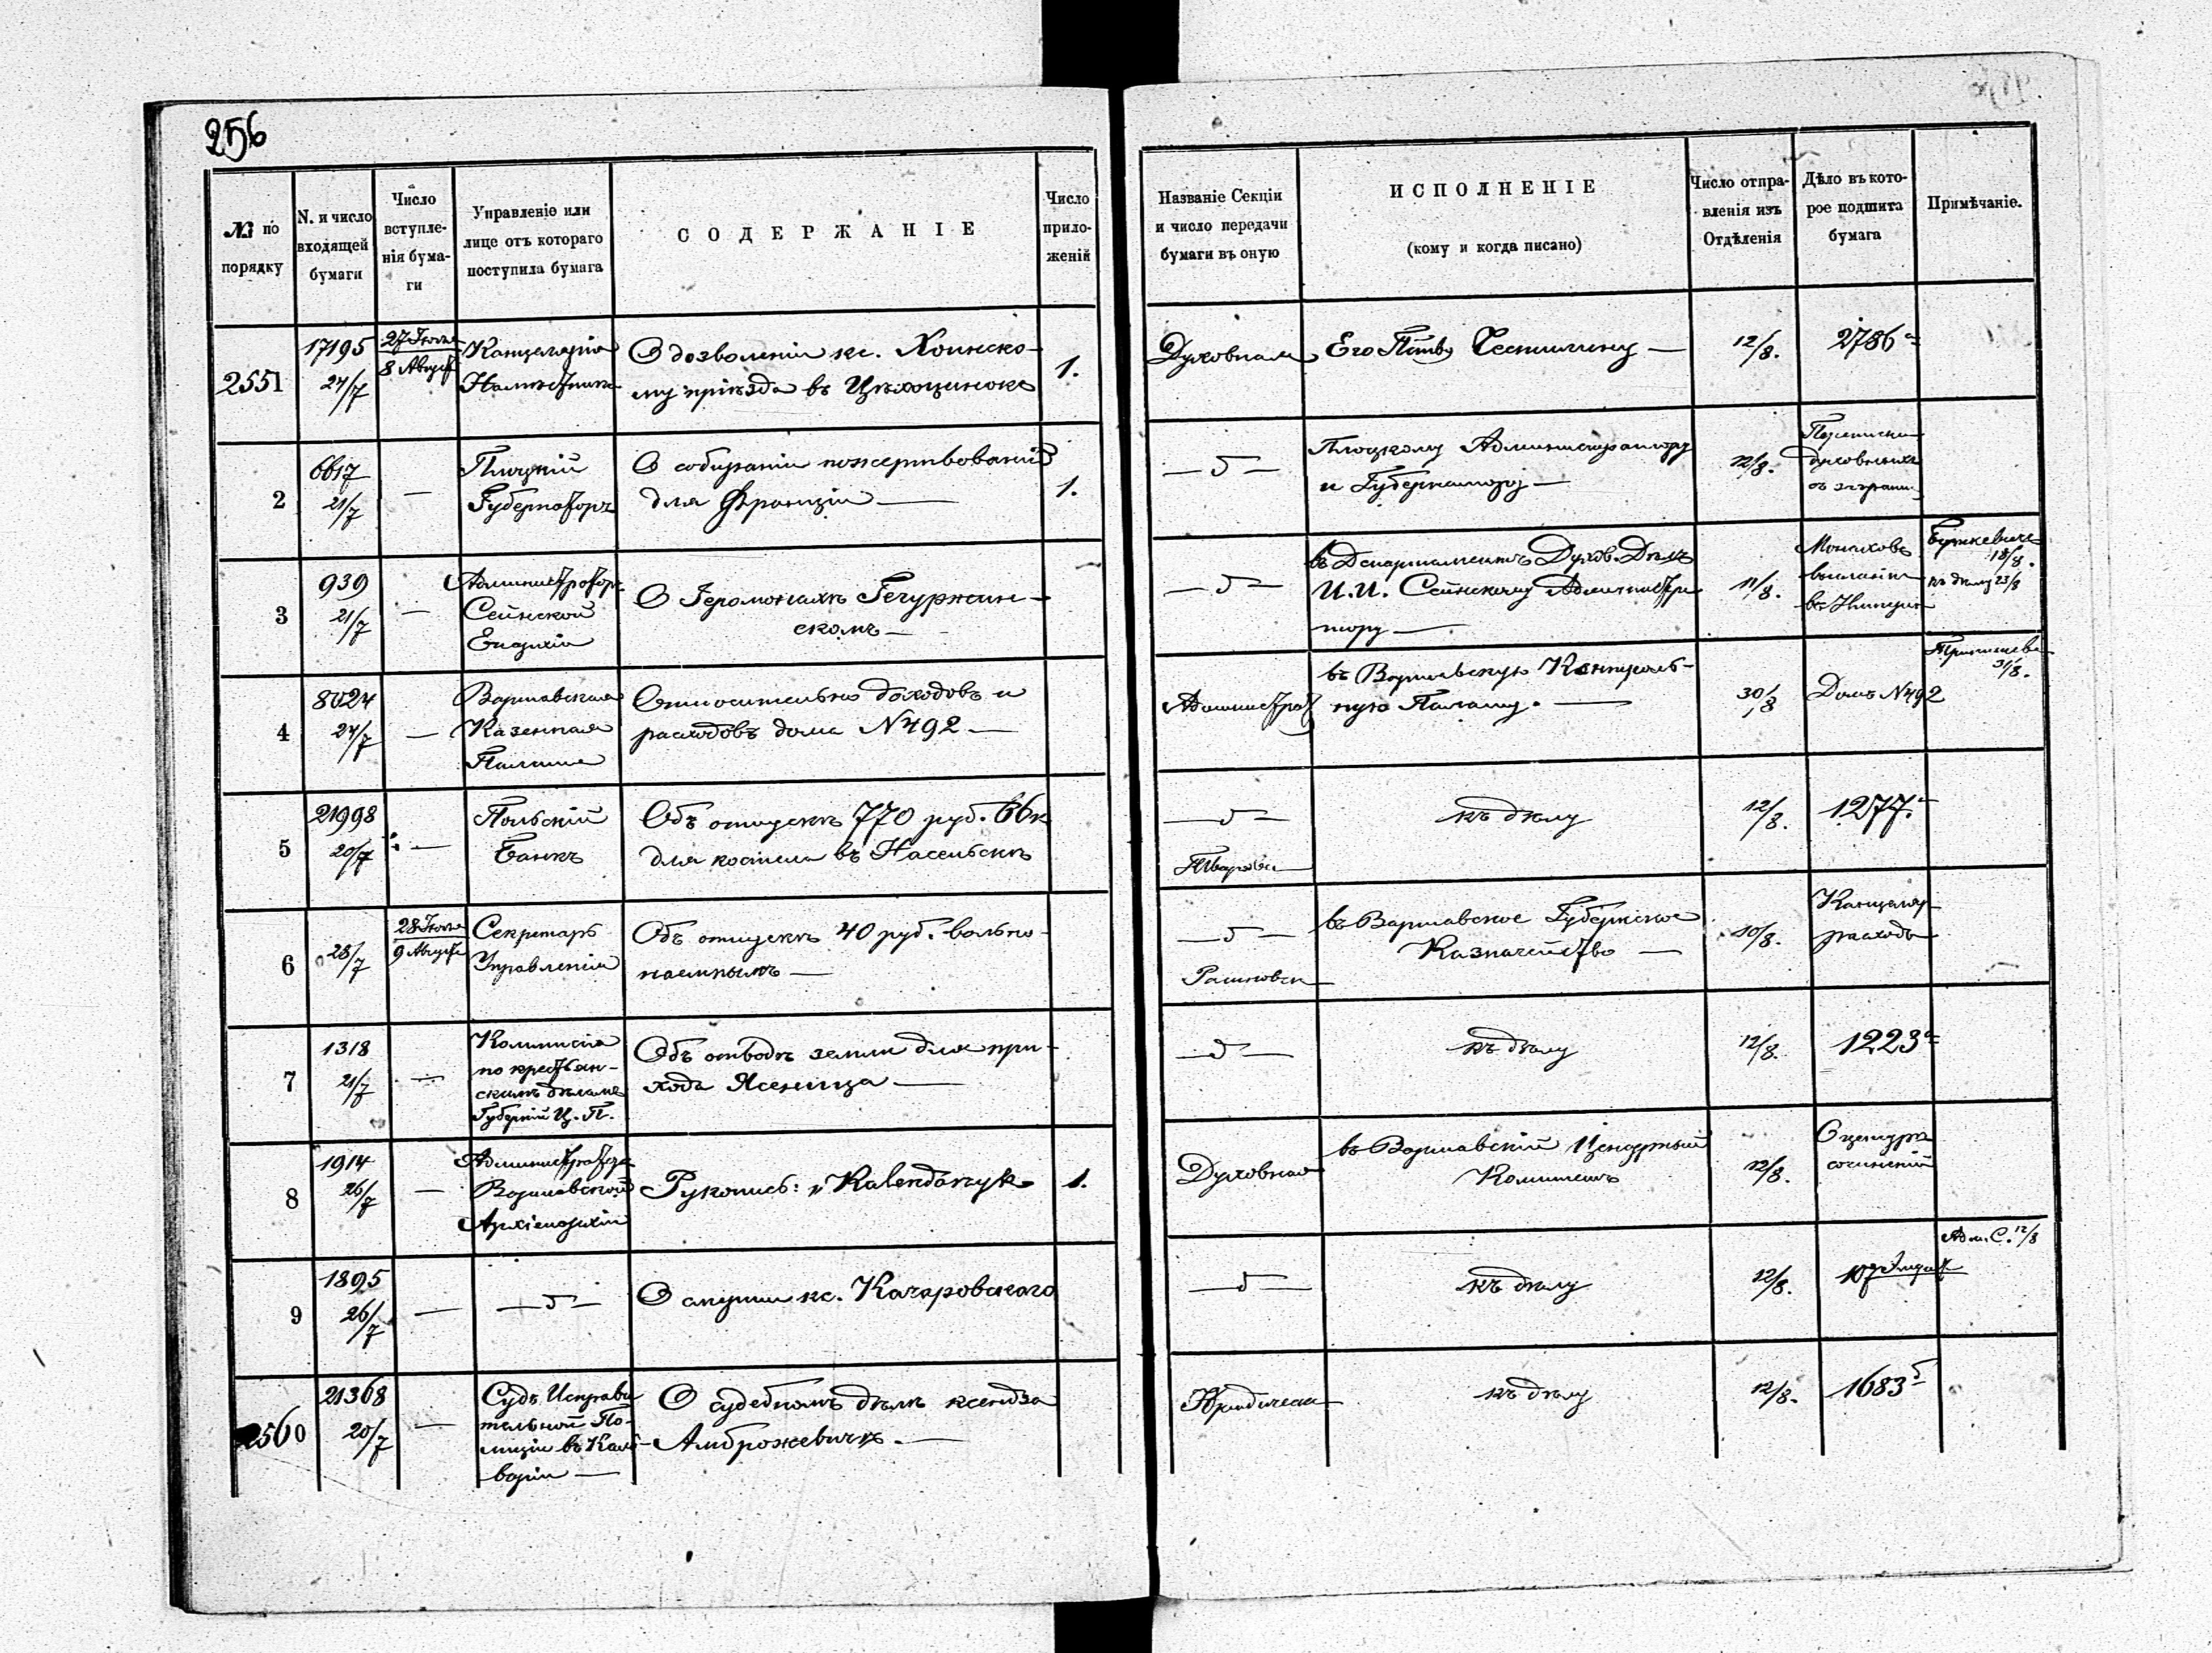 256
№ по порядку
N. и число входящей бумаги
Число вступле-нія бума-ги
Управленіе или лице отъ котораго поступила бумага
СОДЕРЖАНІЕ
Число прило-женій
Названіе Секціи и число передачи бумаги въ оную
ИСПОЛНЕНІЕ
(кому и когда писано)
Число отпра-вленія изъ Отдѣленія
Дѣло въ кото-рое подшита бумага
Примѣчаніе.
2551
17195
24/7
27 Іюля
8 Августа
Канцелярія
Намѣстника
О дозволеніи кс. Хоинско-
му пріѣзда въ Цѣхоцинокъ
1.
Духовная
Его
12/8.
2786 а
2
6617
21/7
—
Плоцкій
Губернаторъ
О собираніи пожертвованій
для Франціи —
1.
— „ —
Плоцкому Администратору
и Губернатору —
12/8.
Переписка
духовныхъ
съ заграниц
3
939
21/7
—
Администраторъ
Сейнской
Епархіи
О Іеромонахѣ Гечуржин-
скомъ —
— „ —
въ Департаментъ Духов. Дѣлъ
И.И. Сейнскому Администра
тору —
11/8.
Монаховъ
высланіе
въ
Буткевичъ
18/8.
къ дѣлу 23/8
4
8024
24/7
—
Варшавская
Казенная
Палата
Относительно доходовъ и
расходовъ дома N 492 —
Администрат
въ Варшавскую Контроль-
ную Палату. —
30/8
Домъ N 492
31/8.
5
21998
20/7
—
Польскій
Банкъ
Объ отпускѣ 770 руб. 66 к
для костела въ Насельскѣ
— „ —
къ дѣлу
12/8.
1277 а
6
28/7
28 Іюля
9 Августа
Секретарь
Управленія
Объ отпускѣ 40 руб. вольно-
наемнымъ —
— „ —
въ Варшавское Губернское
Казначейство —
10/8.
Канцеляр
расходы
7
1318
21/7
—
Коммисія
по крестьян-
скимъ дѣламъ
Губерній Ц. П.
Объ отводѣ земли для при-
хода Ясеница —
— „ —
къ дѣлу
12/8.
1223 а
8
1914
26/7
—
Администраторъ
Варшавской
Архіепархіи
Рукопись: „Kalendarzyk
1.
Духовная
въ Варшавскій Ценсурный
Комитетъ
12/8.
О цензурѣ
сочиненій
9
1895
26/7
—
— „ —
О смерти кс. Качаровскаго
— „ —
къ дѣлу
12/8.
107
Адм. С. 12/8
2560
21368
20/7
—
Судъ Исправи
тельной По-
лиціи въ Каль-
варіи —
О судебномъ дѣлѣ ксендза
Амброжевичъ. —
Юридическ
къ дѣлу
12/8.
1683 б